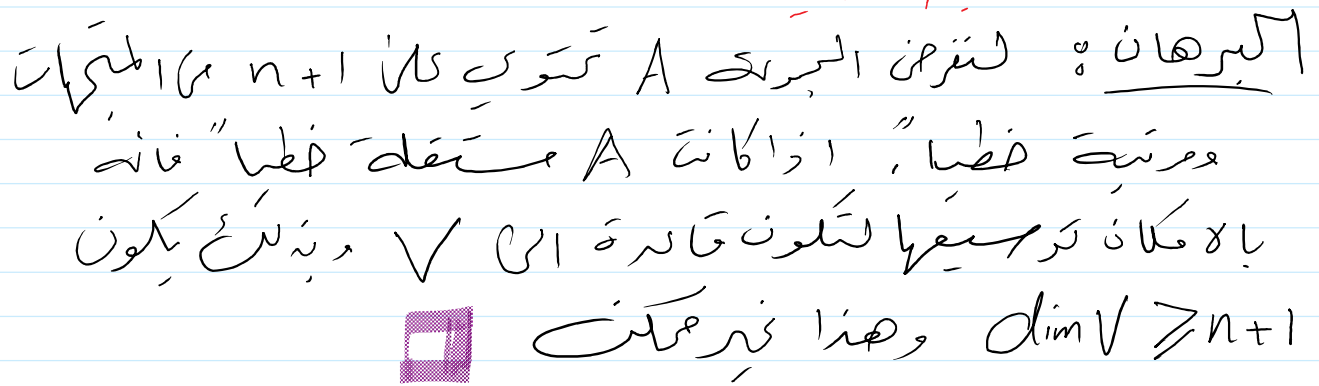 البرهان: لنفرض المجموعة A تحتوي على n+1 من المتجهات
ومرتبة خطياً، اذا كانت A مستقلة خطياً فانه
بالامكان توسيعها لتكون قاعدة الى V وبذلك يكون
dim V ≥ n+1 وهذا غير ممكن